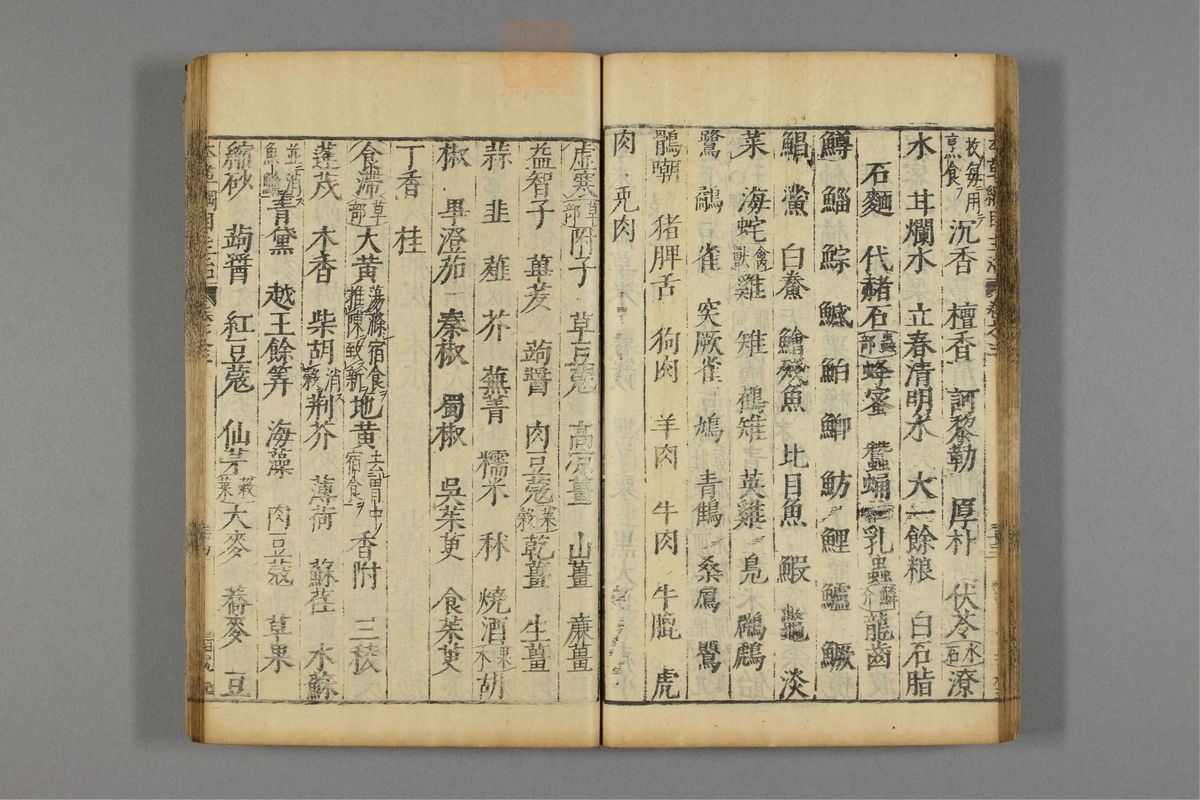 故毎用テ烹食フ 沉香 檀香 訶黎勒 厚朴 伏苓 水石 潦
水 井爛水 立春清明水 太一餘粮 白石脂
石麵 代赭石 蟲部 蜂蜜 蠶蛹 乳蟲 鱗介 龍齒
鱒 鯔 鯮 鰄 鮊 鯽 魴 鯉 鱸 鱖
鯧 鱟 白鯗 鱠殘魚 比目魚 鰕 鼈 淡
菜 海蛇 禽獸 雞 雉 鶡雉 英雞 鳧 鸊鷉
鷺 鷸 雀 突厥雀 鳩 青鶴 桑鳲 鸎
鶻嘲 猪脾舌 狗肉 羊肉 牛肉 牛膍 虎
肉 兎肉
虛寒 草部 附子 草豆蔻 高凉薑 山薑 廉薑
益智子 蓽茇 蒟醬 肉豆蔻 菜穀 乾薑 生薑
蒜 韭 薤 芥 蕪菁 糯米 秫 燒酒 果木 胡
椒 畢澄茄 秦椒 蜀椒 吳茱萸 食茱萸
丁香 桂
食滯 草部 大黃 蕩滌宿食ヲ推陳致新 地黃 去胃中ノ宿食ヲ 香附 三稜
蓬茂 木香 柴胡 消ス穀 荆芥 薄荷 蘇荏 水蘇
並ニ消ス魚鱠 青黛 越王餘筭 海藻 肉豆蔻 草果
縮砂 蒟醬 紅豆蔻 仙茅 穀菜 大麥 蕎麥 豆